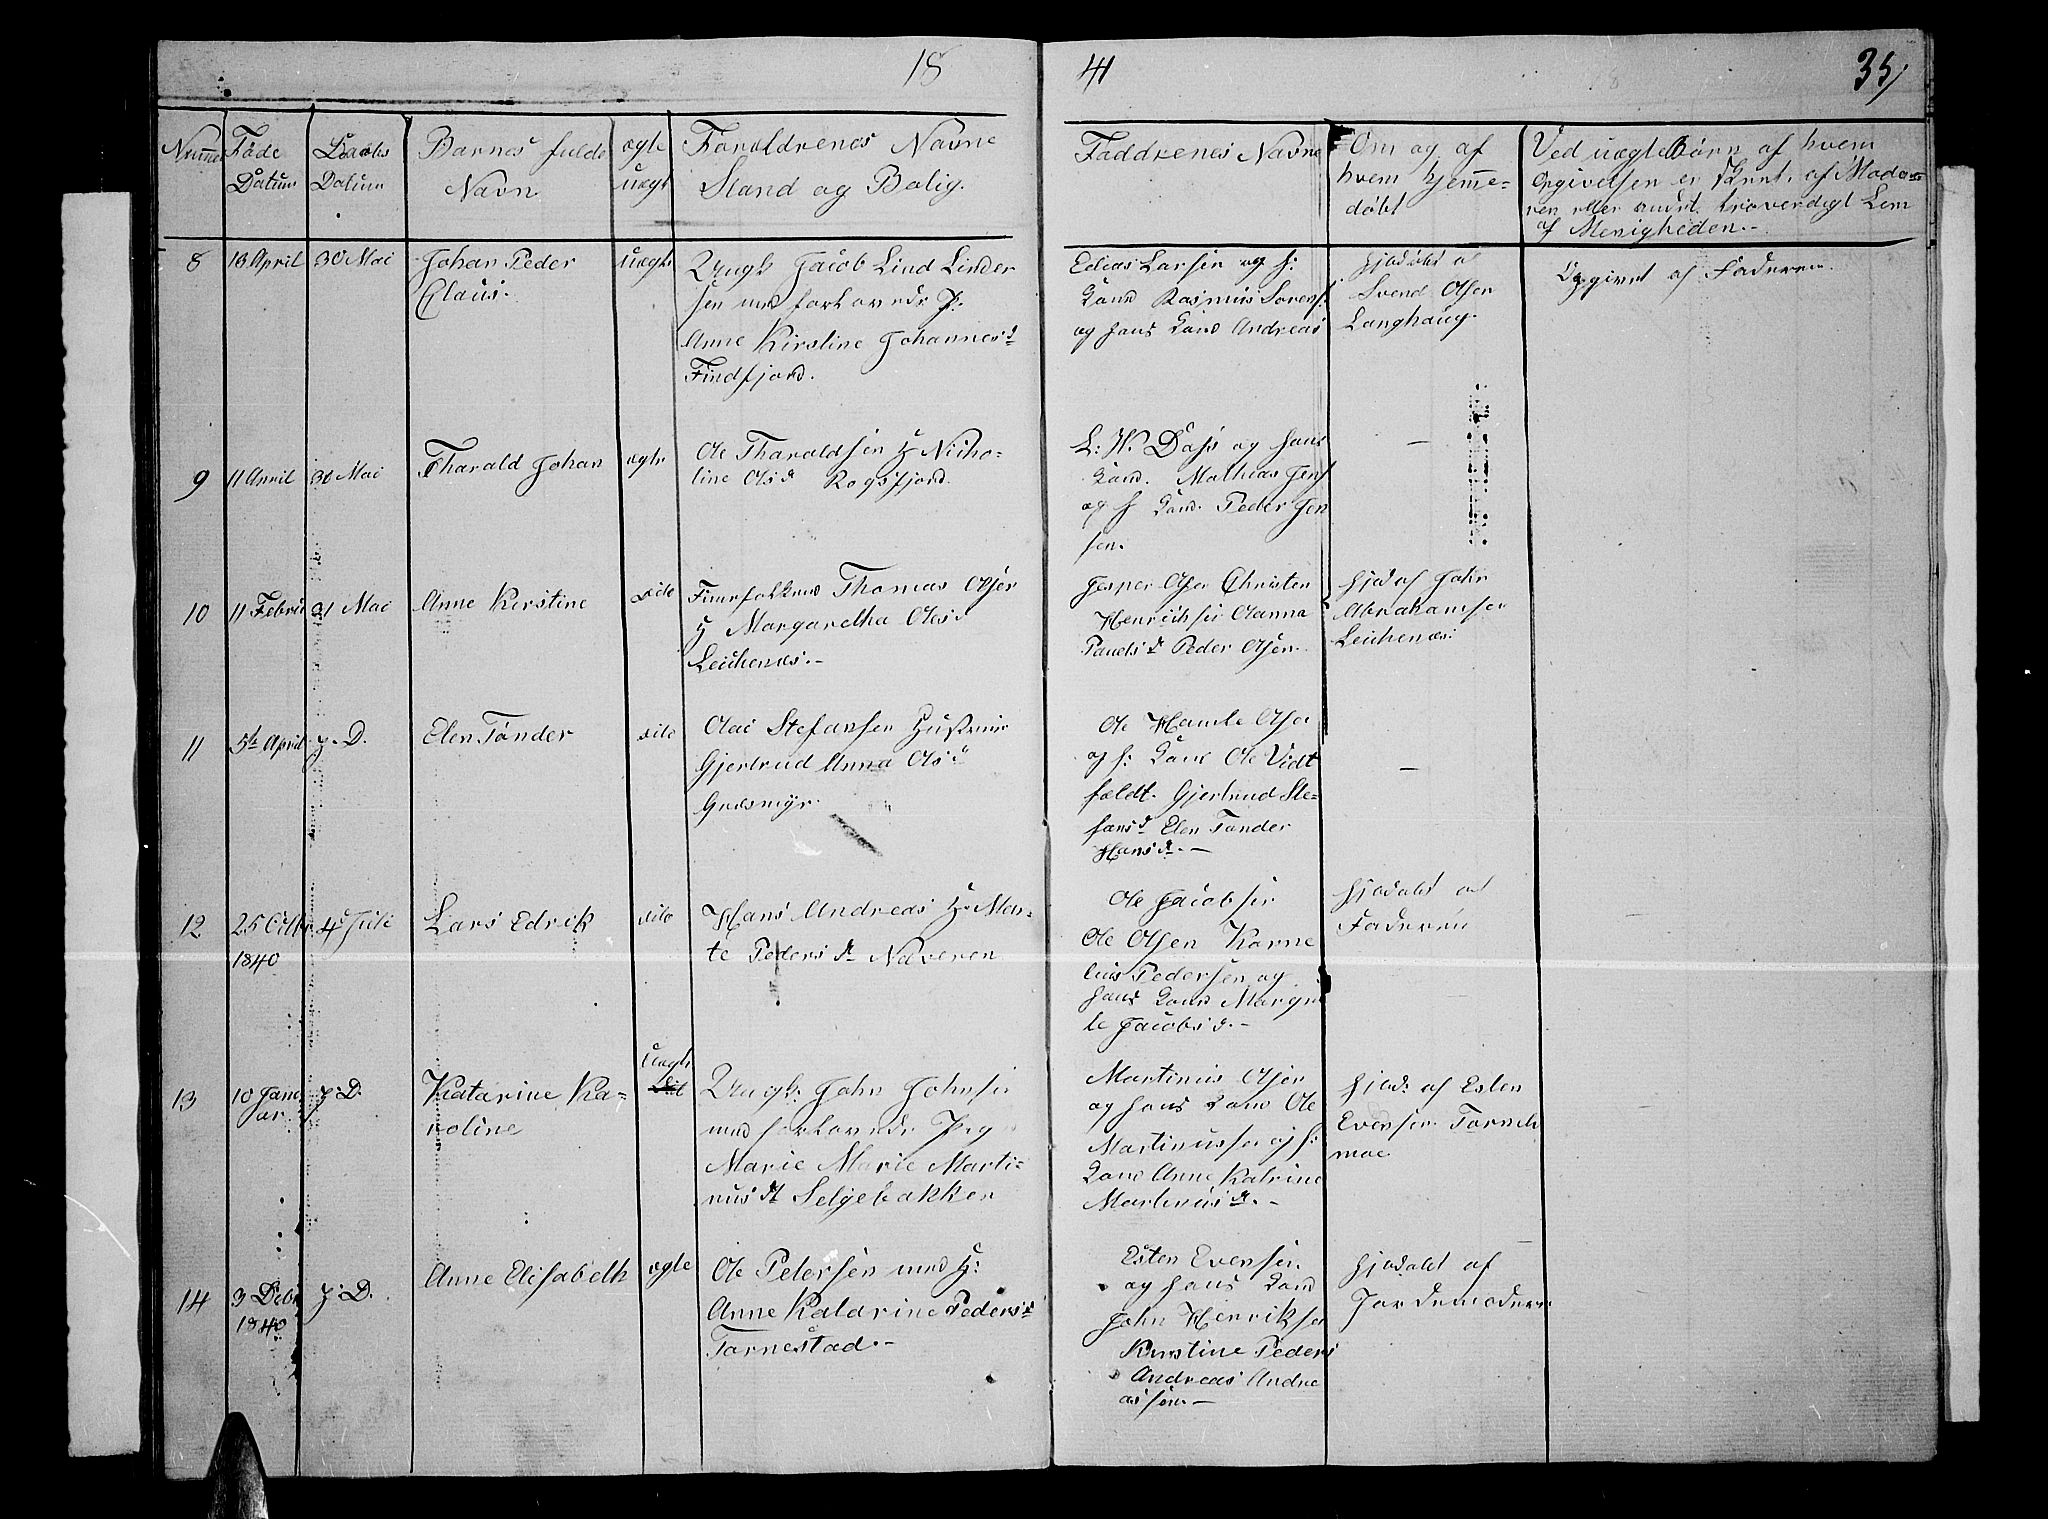 18
41
35
Nummer
Føde
Datum
Daabs
Datum
Barnes fulde
Navn
ægte
uægt
Foreldrenes Navne
Stand og Bolig.
Faddrenes Navne
Om og af
hvem hjemme-
døbt
Ved uægte Børn af hvem
Opgivelsen er skeet. af Mode-
ren eller andet troverdigt Lem
af Menigheden.-
8
18 April
30 Mai
Johan Peder
Claus.
uægte
Ungk Jacob Lind Linder
sen med forlovede P:
Anne Kirstine Johannesd
Findfjord.
Edias Larsen og h:
Kone Rasmus Sorens:
og hans Kone Andreas
hjdøbt af
Svend Olsen
Langhaug.
Opgivet af Faderen.
9
11 April
30 Mai
Tharald Johan
ægte
Ole Tharaldsen H Nicho-
line Olsd Rogsfjord.
L: W. Dass og hans
Kone. Mathias Jens
og h Kone. Peder Jen
sen.
-
10
11 Febru
31 Mai
Anne Kirstine
dito
Finnfolkene Thomas Olsen
H Margaretha Olesd
Leichenes.-
Jesper Olsen Christen
Henrichsen Oanna
Pauelsd Peder Olsen.
hjd af John
Abrahamsen
Leichenes:
11
5te April
s. D.
Elen Tønder
dito
Olai Stefansen Hustrue
Gjertrud Anna Olsd
Gresmyr.
Ole Hamle Olsen
og h: Kone Ole Vidt
feldt. Gjertrud Ste-
fansd Elen Tønder
Hansd.-
-
12
25 Octbr
1840
4 Juli
Lars Edrik
dito
Hans Andreas H: Mar-
te Pedersd Naveren
Ole Jacobsen
Ole Olsen Korne
lius Pedersen og
hans Kone Margre
te Jacobsd.-
hjdøbt af
Faderen
13
10 Janu
ar.
s. D.
Katarine Ka-
roline
uægte
Dit
Ungk: John Johnsen
med forlovede Pig
Marie Marie Marti-
nusd Selgebakken
Martinus Olsen
og hans Kone Ole
Martinussen og h:
Kone Anne Katrine
Martinusd.-
hjdd: af Esten
Evensen Tarneh
moe
14
3 Debr
1840
s. D.
Anne Elisabeth
ægte
Ole Petersen med H:
Anne Katarine Pedersd
Tarnestad.-
Esten Evensen.
og hans Kone
John Henriksen
Kirstine Peders
Andreas Andre
assen.-
hjdøbt af
Jordemoderen